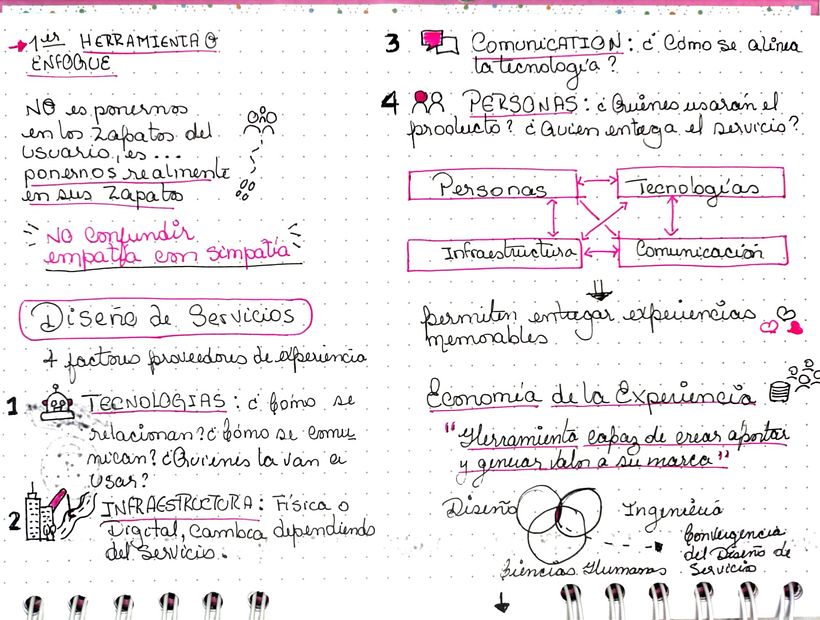 1er HERRAMIENTA O
ENFOQUE
NO es ponernos
en los zapatos del
usuario, es...
ponernos realmente
en sus zapatos
NO confundir
empatía con simpatía
Diseño de Servicios
4 factores proveedores de experiencia
1 TECNOLOGIAS: ¿ Cómo se
relacionan? ¿Cómo se comu
nican? ¿Quiénes la van a
usar?
2 INFRAESTRUCTURA: Física o
Digital, cambia dependiendo
del servicio.
3 COMUNICATION: ¿ Cómo se alinea
la tecnología?
4 PERSONAS: ¿Quiénes usarán el
producto? ¿Quien entega el servicio?
Personas
Tecnologías
Infraestructura
Comunicación
permiten entregar experiencias
memorables
Economía de la Experiencia
"Herramienta capaz de crear aportar
y generar valor a su marca"
Diseño
Ingeniería
Convergencia
del Diseño de
Servicio
Ciencias Humanas